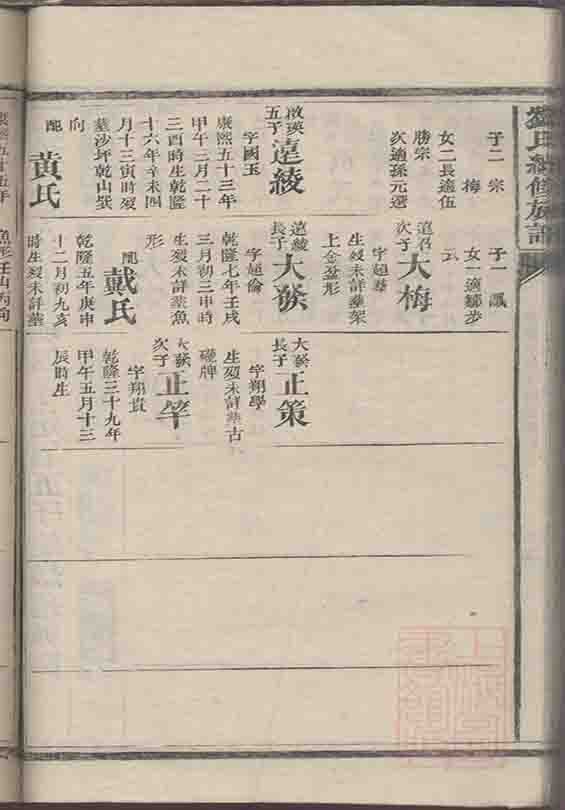 氏續修族譜
子二 宗
梅
女二長適伍
勝宗
次適孫元選
啟瑛
五子
遠綾
字國玉
康熙五十三年
甲午三月二十
三酉時生乾隆
十六年辛未四
月十三寅時歿
墓沙坪乾山巽
向
配
黃氏
子一 鳳
女一適鄒步
云
遠召
次子
大梅
字超羣
生歿未詳葬架
上金盆形
遠綾
長子
字超倫
乾隆七年壬戌
三月初三申時
生歿未詳葬魚
形
配
戴氏
乾隆五年庚申
十二月初九亥
時生歿未詳葬
長子
正策
字翔學
生歿未詳葬古
碑
次子
正竿
字翔貴
乾隆三十九年
甲午五月十三
辰時生